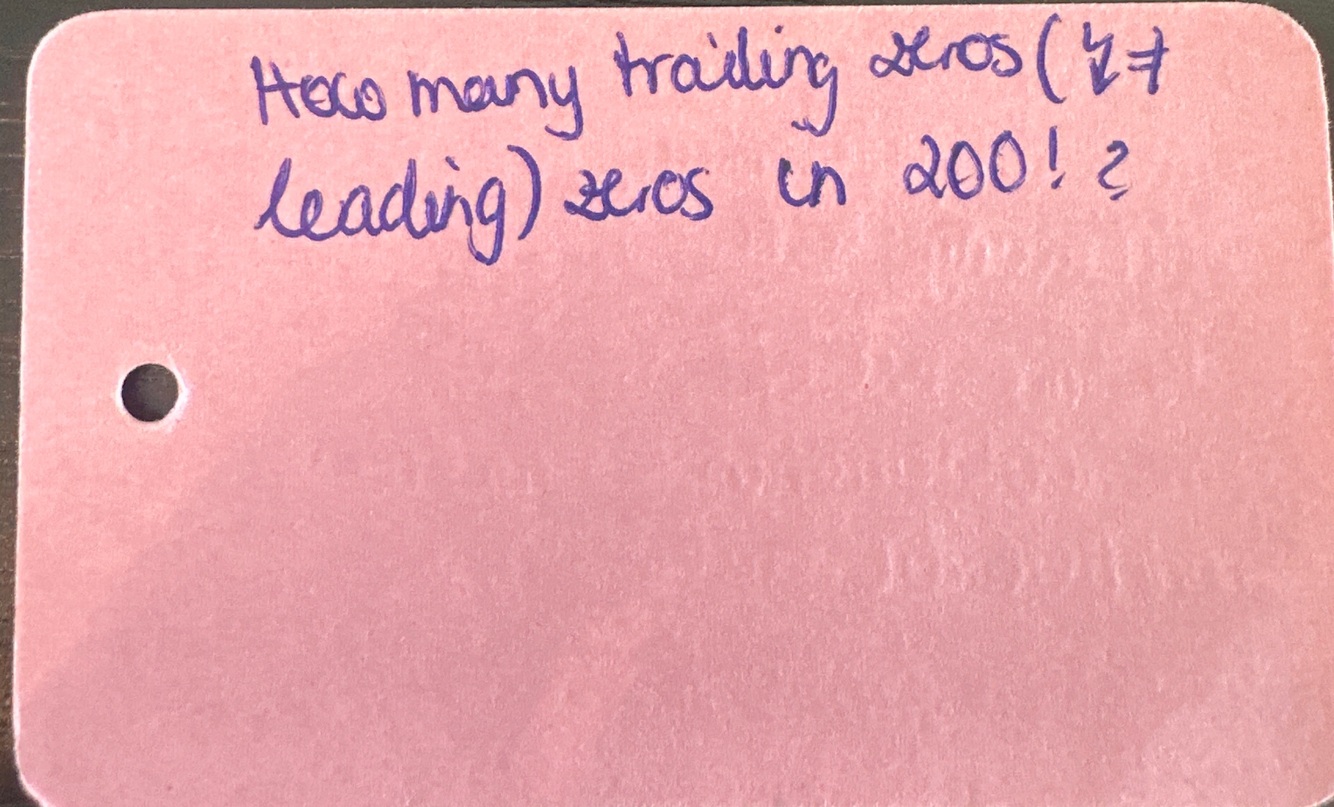 How many trailing zeros (↯ ≠
leading) zeros in 200! ?